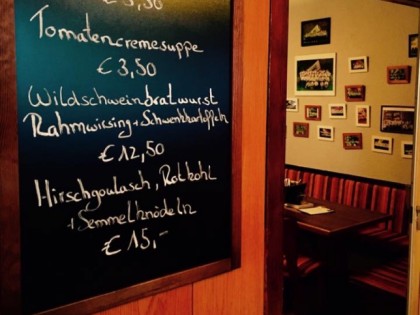 € 3,50
Tomatencremesuppe
€ 3,50
Wildschweinbratwurst
Rahmwirsing + Schwenkkartoffeln
€ 12,50
Hirschgoulasch, Rotkohl
+ Semmelknödeln
€ 15,-